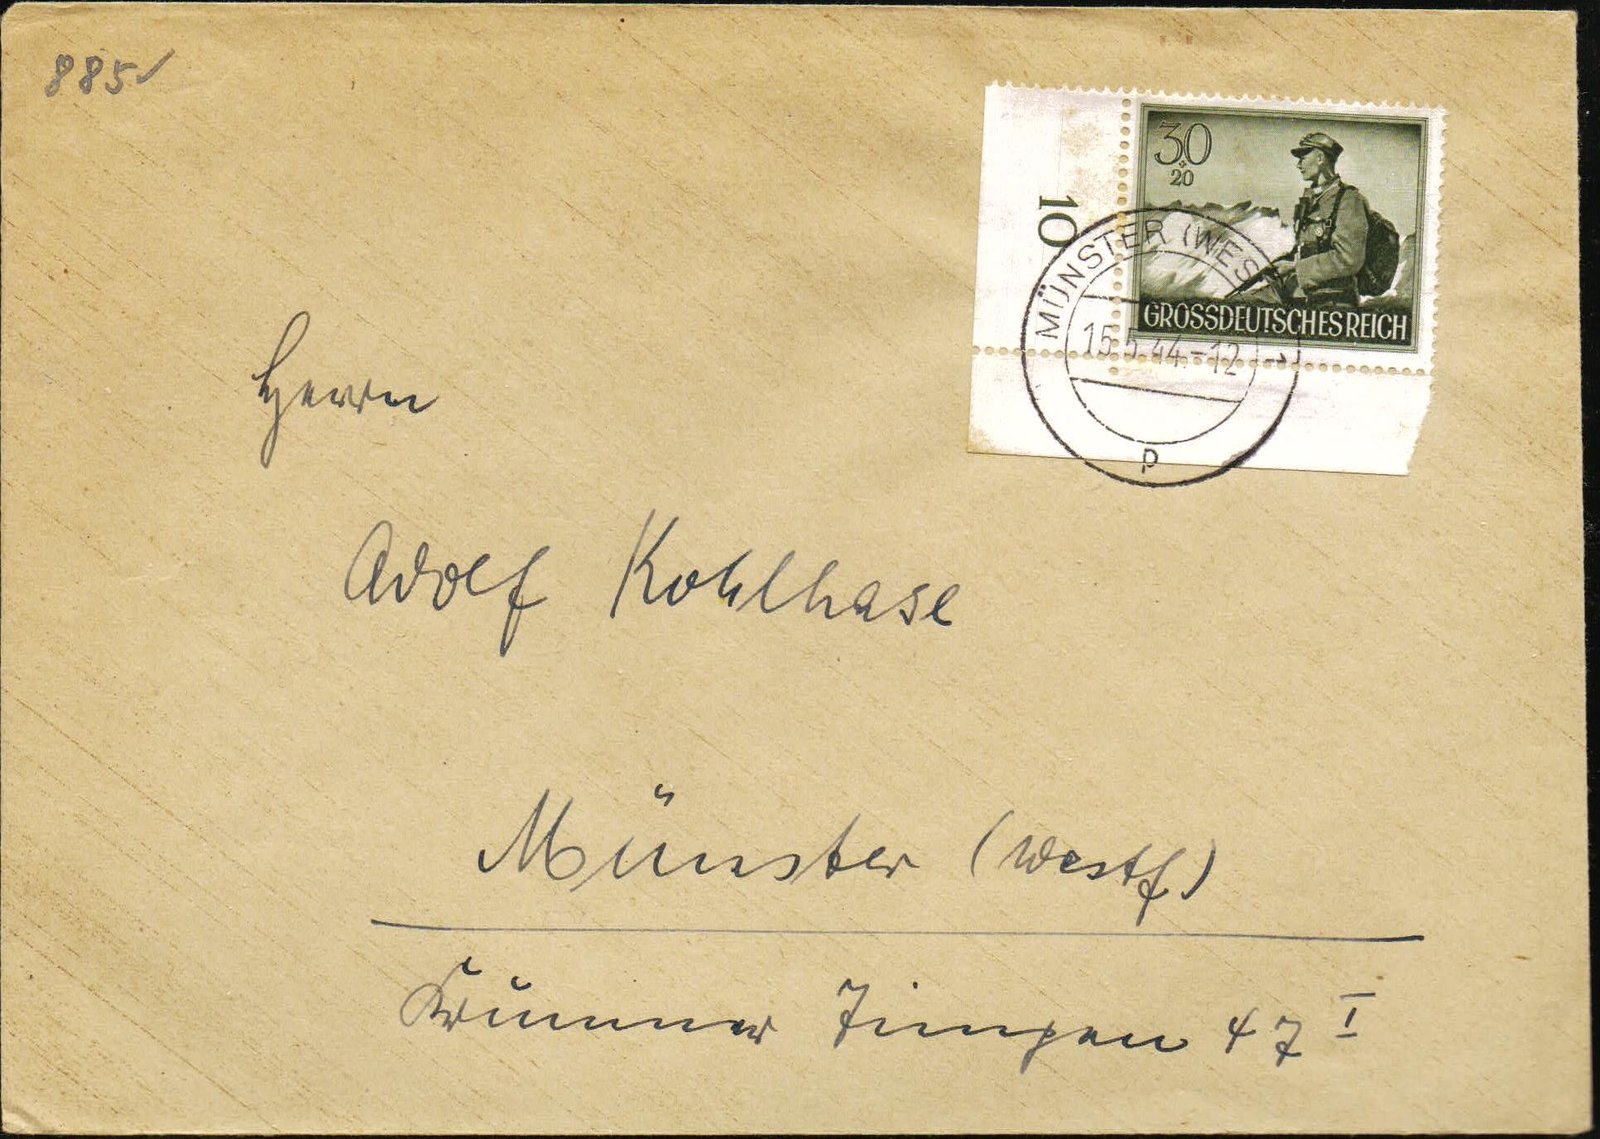 885
30
+
20
10
GROSSDEUTSCHES REICH
MÜNSTER (WES
15.5.44-12
p
Herrn
Adolf Kohlhase
Münster (Westf)
Krummer Timpen 47 I